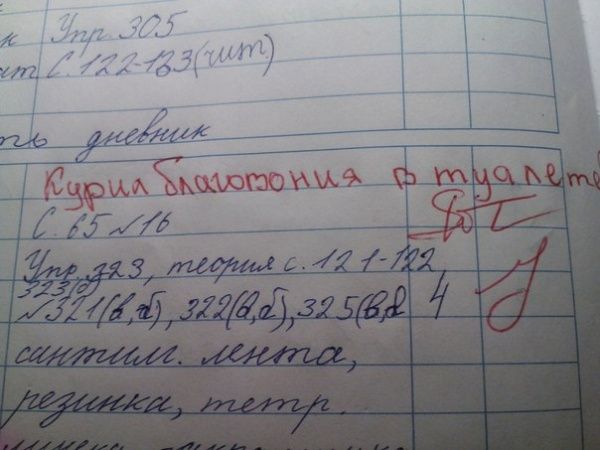 Упр. 305
С. 122-123 (чит)
дневник
Курил благовония в туалете
С. 65 №16
Упр. 323, теория с. 121-122,
323(б)
№321(в,б), 322(в,б), 325(в, 4
сантим. лента,
резинка, тетр.